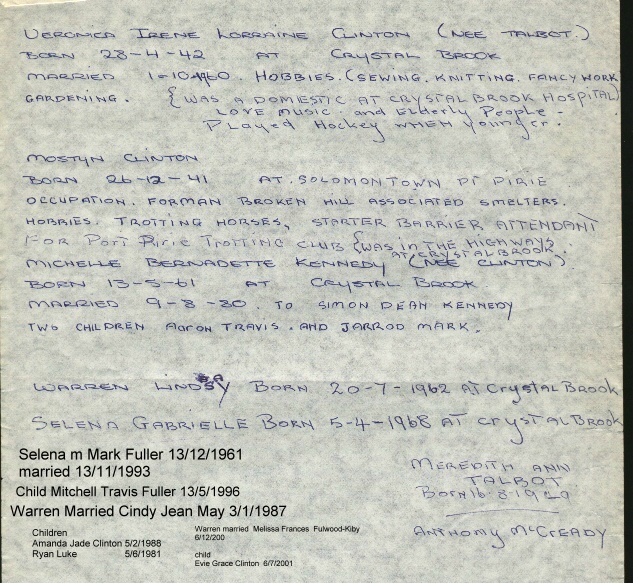 VERONICA IRENE LORRAINE CLINTON (NEE TALBOT.)
BORN 28-4-42 AT CRYSTAL BROOK
MARRIED 1-10-1960. HOBBIES. (SEWING. KNITTING. FANCY WORK
GARDENING. {WAS A DOMESTIC AT CRYSTAL BROOK HOSPITAL)
LOVE MUSIC and Elderly People -
Played Hockey WHEN younger.
MOSTYN CLINTON
BORN 26-12-41 AT. SOLOMONTOWN PT PIRIE
OCCUPATION. FORMAN BROKEN HILL ASSOCIATED SMELTERS.
HOBBIES. TROTTING HORSES, STARTER BARRIER ATTENDANT
FOR PORT PIRIE TROTTING CLUB {WAS IN THE HIGHWAYS
AT CRYSTAL BROOK.
MICHELLE BERNADETTE KENNEDY (NEE CLINTON)
BORN 13-5-61 AT CRYSTAL BROOK
MARRIED 9-8-80. TO SIMON DEAN KENNEDY
TWO CHILDREN AARON TRAVIS. AND JARROD MARK.
WARREN LINDSAY BORN 20-7-1962 AT Crystal Brook
SELENA GABRIELLE BORN 5-4-1968 AT Crystal Brook
Selena m Mark Fuller 13/12/1961
married 13/11/1993
Child Mitchell Travis Fuller 13/5/1996
Warren Married Cindy Jean May 3/1/1987
Children
Amanda Jade Clinton 5/2/1988
Ryan Luke 5/6/1981
Warren married Melissa Frances Fulwood-Kiby
6/12/200
child
Evie Grace Clinton 6/7/2001
MEREDITH ANN
TALBOT
Born 16.8
ANTHONY McCREADY